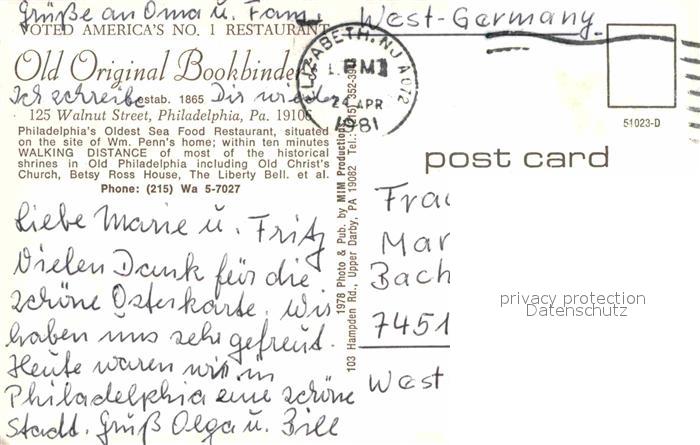 Grüße an Oma u. Fam.
West-Germany
VOTED AMERICA'S NO. 1 RESTAURANT
Old Original Bookbinder
Ich schreibe Dir wieder
estab. 1865
125 Walnut Street, Philadelphia, Pa. 19106
Philadelphia's Oldest Sea Food Restaurant, situated
on the site of Wm. Penn's home; within ten minutes
WALKING DISTANCE of most of the historical
shrines in Old Philadelphia including Old Christ's
Church, Betsy Ross House, The Liberty Bell. et al.
Phone: (215) Wa 5-7027
Liebe Marie u. Fritz
Vielen Dank für die
schöne Osterkarte. Wir
haben uns sehr gefreut.
Heute waren wir in
Philadelphia eine schöne
Stadt. Gruß Olga u. Bill
1978 Photo & Pub. by MIM Productions
103 Hampden Rd., Upper Darby, PA 19082 Tel.: (215) 352-39
ELIZABETH, NJ 072
PM
24 APR
1981
51023-D
post card
Frau
Mar
Bach
7451
West
privacy protection
Datenschutz